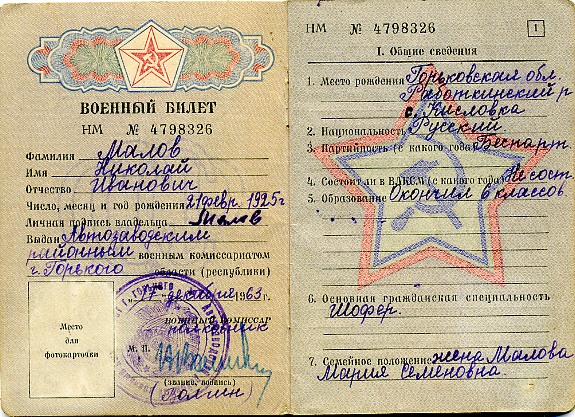 ВОЕННЫЙ БИЛЕТ
НМ № 4798326
Фамилия Малов
Имя Николай
Отчество Иванович
Число, месяц и год рождения 21 февр. 1925 г
Личная подпись владельца Малов
Выдан Автозаводским
районным военным комиссариатом
г. Горького области (республики)
„17" декабря 1963 г.
ВОЕННЫЙ КОМИССАР
полковник
М. П.
(звание, подпись)
Место
для
фотокарточки
НМ № 4798326 1
I. Общие сведения
1. Место рождения Горьковская обл.
Работкинский р
с. Кисловка
2. Национальность Русский
3. Партийность (с какого года) Беспарт.
4. Состоит ли в ВЛКСМ (с какого года) Не сост
5. Образование Окончил 6 классов
6. Основная гражданская специальность
Шофер.
7. Семейное положение жена Малова
Мария Семеновна.